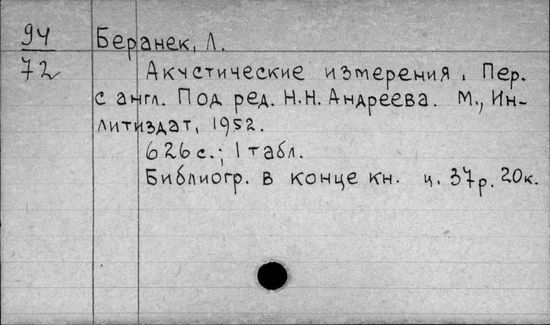 94
72
Беранек, Л.
Акустические измерения. Пер.
с англ. Под ред. Н.Н. Андреева. М., Ин-
литиздат, 1952.
626 с.; 1 табл.
Библиогр. в конце кн. ц. 37 р. 20 к.